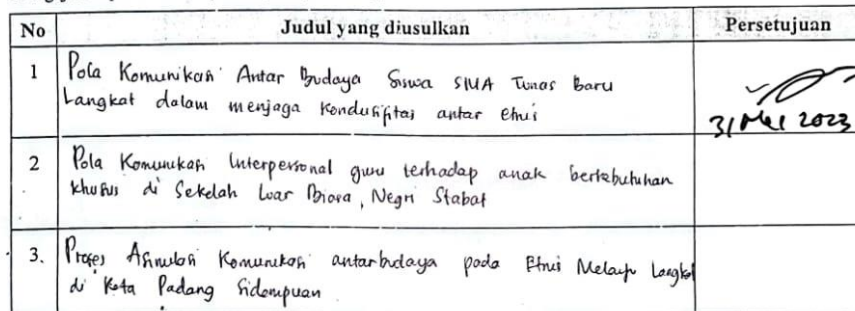 No Judul yang diusulkan Persetujuan
1 Pola Komunikasi Antar Budaya Siswa SMA Tunas Baru
Langkat dalam menjaga Kondusifitas antar etnis
31 Mei 2023
2 Pola Komunikasi Interpersonal guru terhadap anak berkebutuhan
khusus di Sekolah Luar Biasa, Negri Stabat
3. Proses Asimilasi Komunikasi antarbudaya pada Etnis Melayu Langkat
di Kota Padang Sidempuan